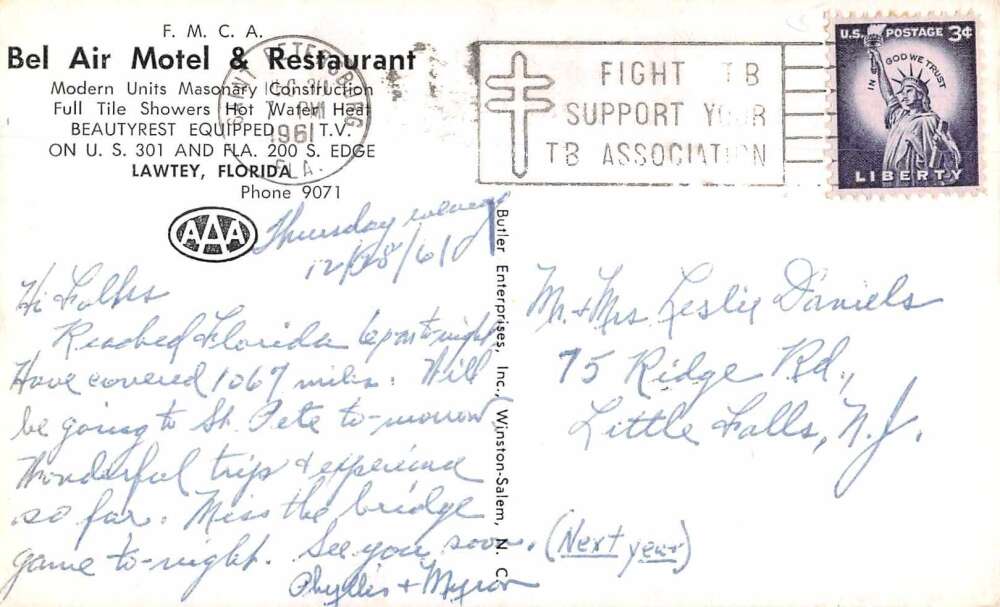 F. M. C. A.
Bel Air Motel & Restaurant
Modern Units Masonary Construction
Full Tile Showers Hot Water Heat
BEAUTYREST EQUIPPED T.V.
ON U. S. 301 AND FLA. 200 S. EDGE
LAWTEY, FLORIDA
Phone 9071
AAA
SAINT PETERSBURG
PM
1961
FLA.
FIGHT TB
SUPPORT YOUR
TB ASSOCIATION
U.S. POSTAGE 3¢
IN GOD WE TRUST
LIBERTY
Thursday evening
12/28/61
Hi Folks
Reached Florida 6 pm to-night
Have covered 1067 miles. Will
be going to St. Pete to-morrow.
Wonderful trip & experience
so far. Miss the bridge
game to-night. See you soon. (Next year)
Phyllis + Myron
Butler Enterprises, Inc., Winston-Salem, N. C.
Mr. + Mrs Leslie Daniels
75 Ridge Rd.,
Little Falls, N.J.